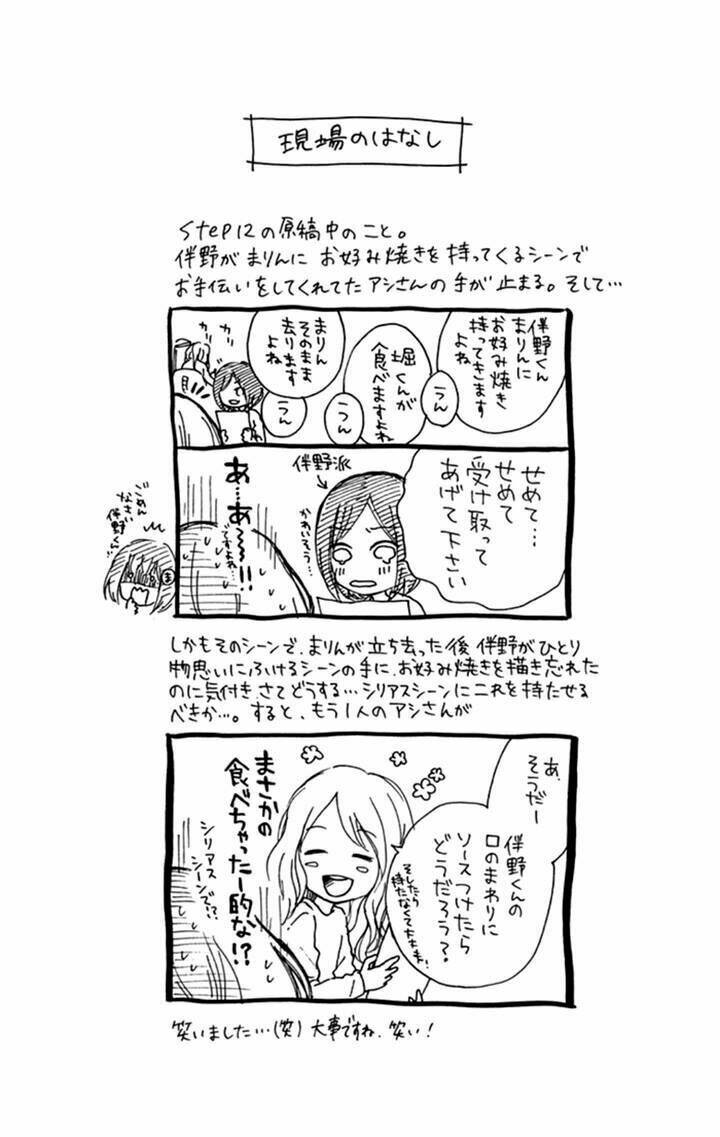 現場のはなし
Step12の原稿中のこと。
伴野がまりんにお好み焼きを持ってくるシーンで
お手伝いをしてくれてたアシさんの手が止まる。そして…
伴野くん
まりんに
お好み焼き
持ってきます
よね
うん
堀くんが
食べますよね
うん
まりん
そのまま
去ります
よね
うん
カリ
カリ
せめて…
せめて
受け取って
あげて下さい
伴野派
かわいそう…
あ…あ〜〜!!
ですよね…
ごめん
なさい
伴野くん…
ま
しかもそのシーンで、まりんが立ち去った後 伴野がひとり
物思いにふけるシーンの手に、お好み焼きを描き忘れた
のに気付き、さてどうする…シリアスシーンにこれを持たせる
べきか…。すると、もう1人のアシさんが
あ、
そうだー
伴野くんの
口のまわりに
ソースつけたら
どうだろう?
そしたら
持たなくて大丈夫!
まさかの
食べちゃったー的な!?
シリアス
シーンで!?
笑いました…(笑) 大事ですね、笑い!